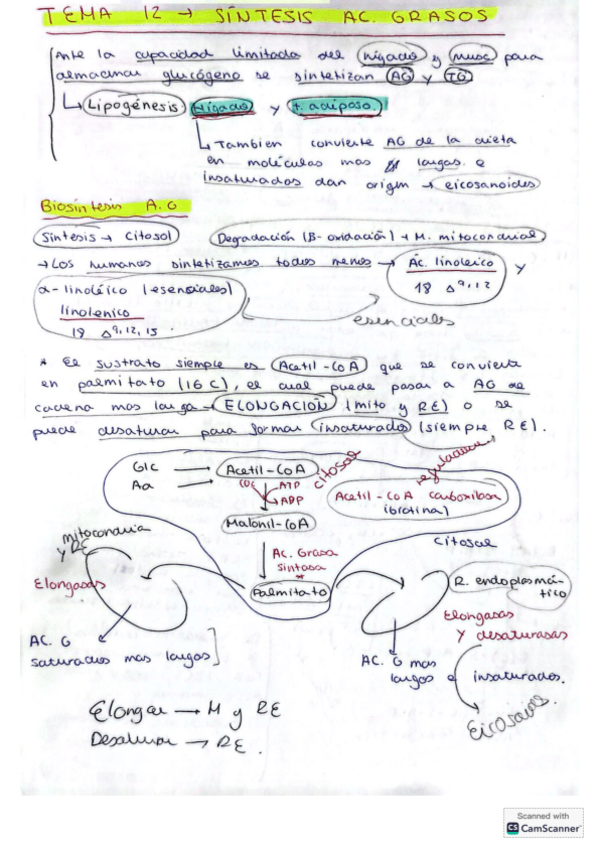 TEMA 12 → SÍNTESIS AC. GRASOS
Ante la capacidad limitada del hígado y musc para
almacenar glucógeno se sintetizan AG y TG
Lipogénesis Hígado y t. adiposo.
Tambien convierte AG de la dieta
en moléculas mas largas e
insaturados dan origin → eicosanoides
Biosíntesis A.G
Síntesis → Citosol Degradación (β-oxidación) → M. mitocondrial
→ Los humanos sintetizamos todos menos → Ác. linoleico y
18 Δ9,12
α-linoléico (esenciales)
linolenico
18 Δ9,12,15.
esenciales
* El sustrato siempre es Acetil-CoA que se convierte
en palmitato (16 C), el cual puede pasar a AG de
cadena mas larga → ELONGACIÓN (mito y RE) o se
puede desaturar para formar insaturados (siempre RE).
Glc → Acetil-CoA citosol
Aa
ATP
ADP
Acetil-CoA carboxilasa
(biotina)
Malonil-CoA
citosol
mitocondria
y RE
Ac. Graso
Sintasa
*
Elongasas
Palmitato
R. endoplasmá-
tico
Elongasas
y desaturasas
AC. G
saturados mas largos
AC. G mas
largos e insaturados.
Elongar → M y RE
Desaturar → RE.
Scanned with
CS CamScanner